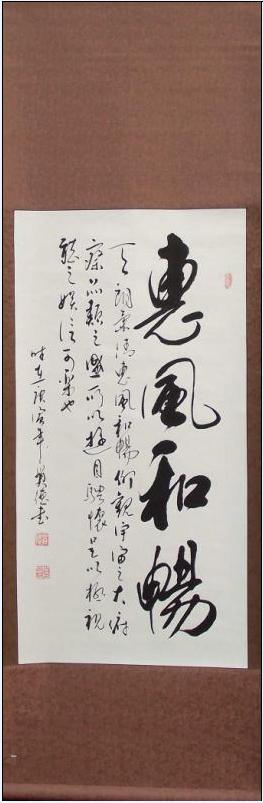 惠風和暢
天朗氣清惠風和暢仰觀宇宙之大俯
察品類之盛所以遊目騁懷足以極視
聽之娛信可樂也
時在庚寅年書